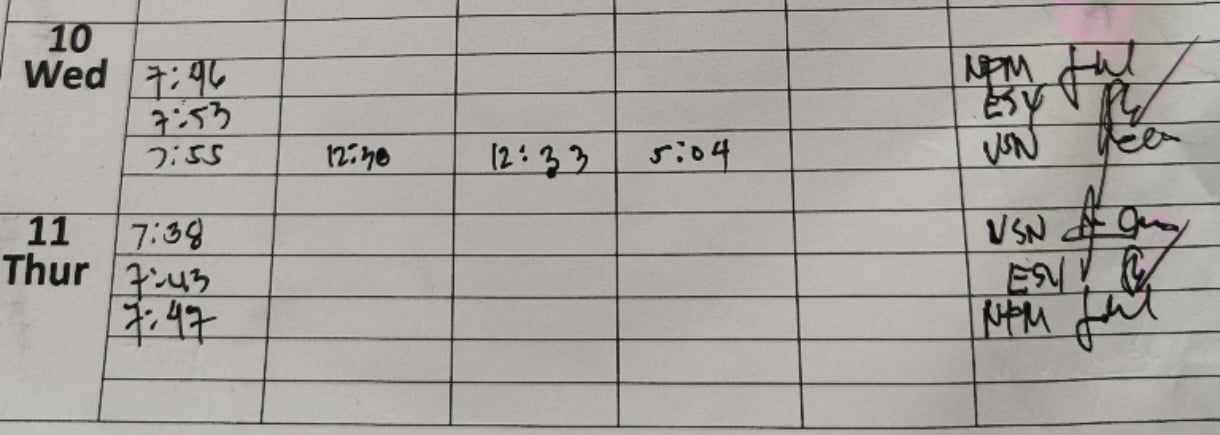 10
Wed
7:46 NPM
7:53 ESY
7:55 12:30 12:33 5:04 VSN
11
Thur
7:38 VSN
7:43 ESY
7:47 NPM